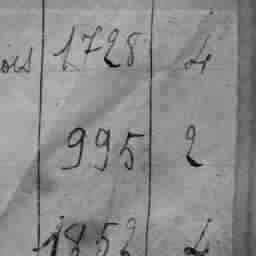 ois 1728 4
995 2
1852 4